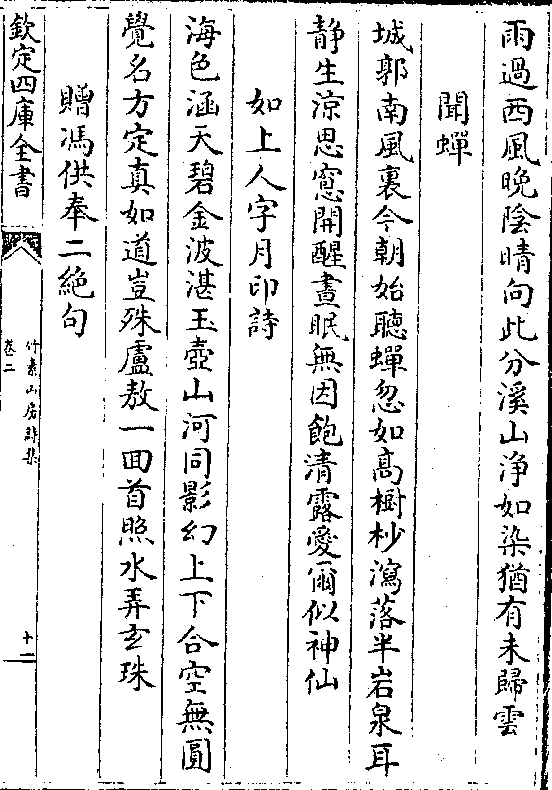 雨過西風晚陰晴向此分溪山淨如染猶有未歸雲
聞蟬
城郭南風裏今朝始聽蟬忽如髙樹杪瀉落半岩泉耳
静生涼思窓開醒晝眠無因飽清露愛爾似神仙
如上人字月印詩
海色涵天碧金波湛玉壺山河同影幻上下合空無圓
覺名方定真如道豈殊盧敖一回首照水弄玄珠
贈馮供奉二絶句
欽定四庫全書
竹素山房詩集
卷二
十二